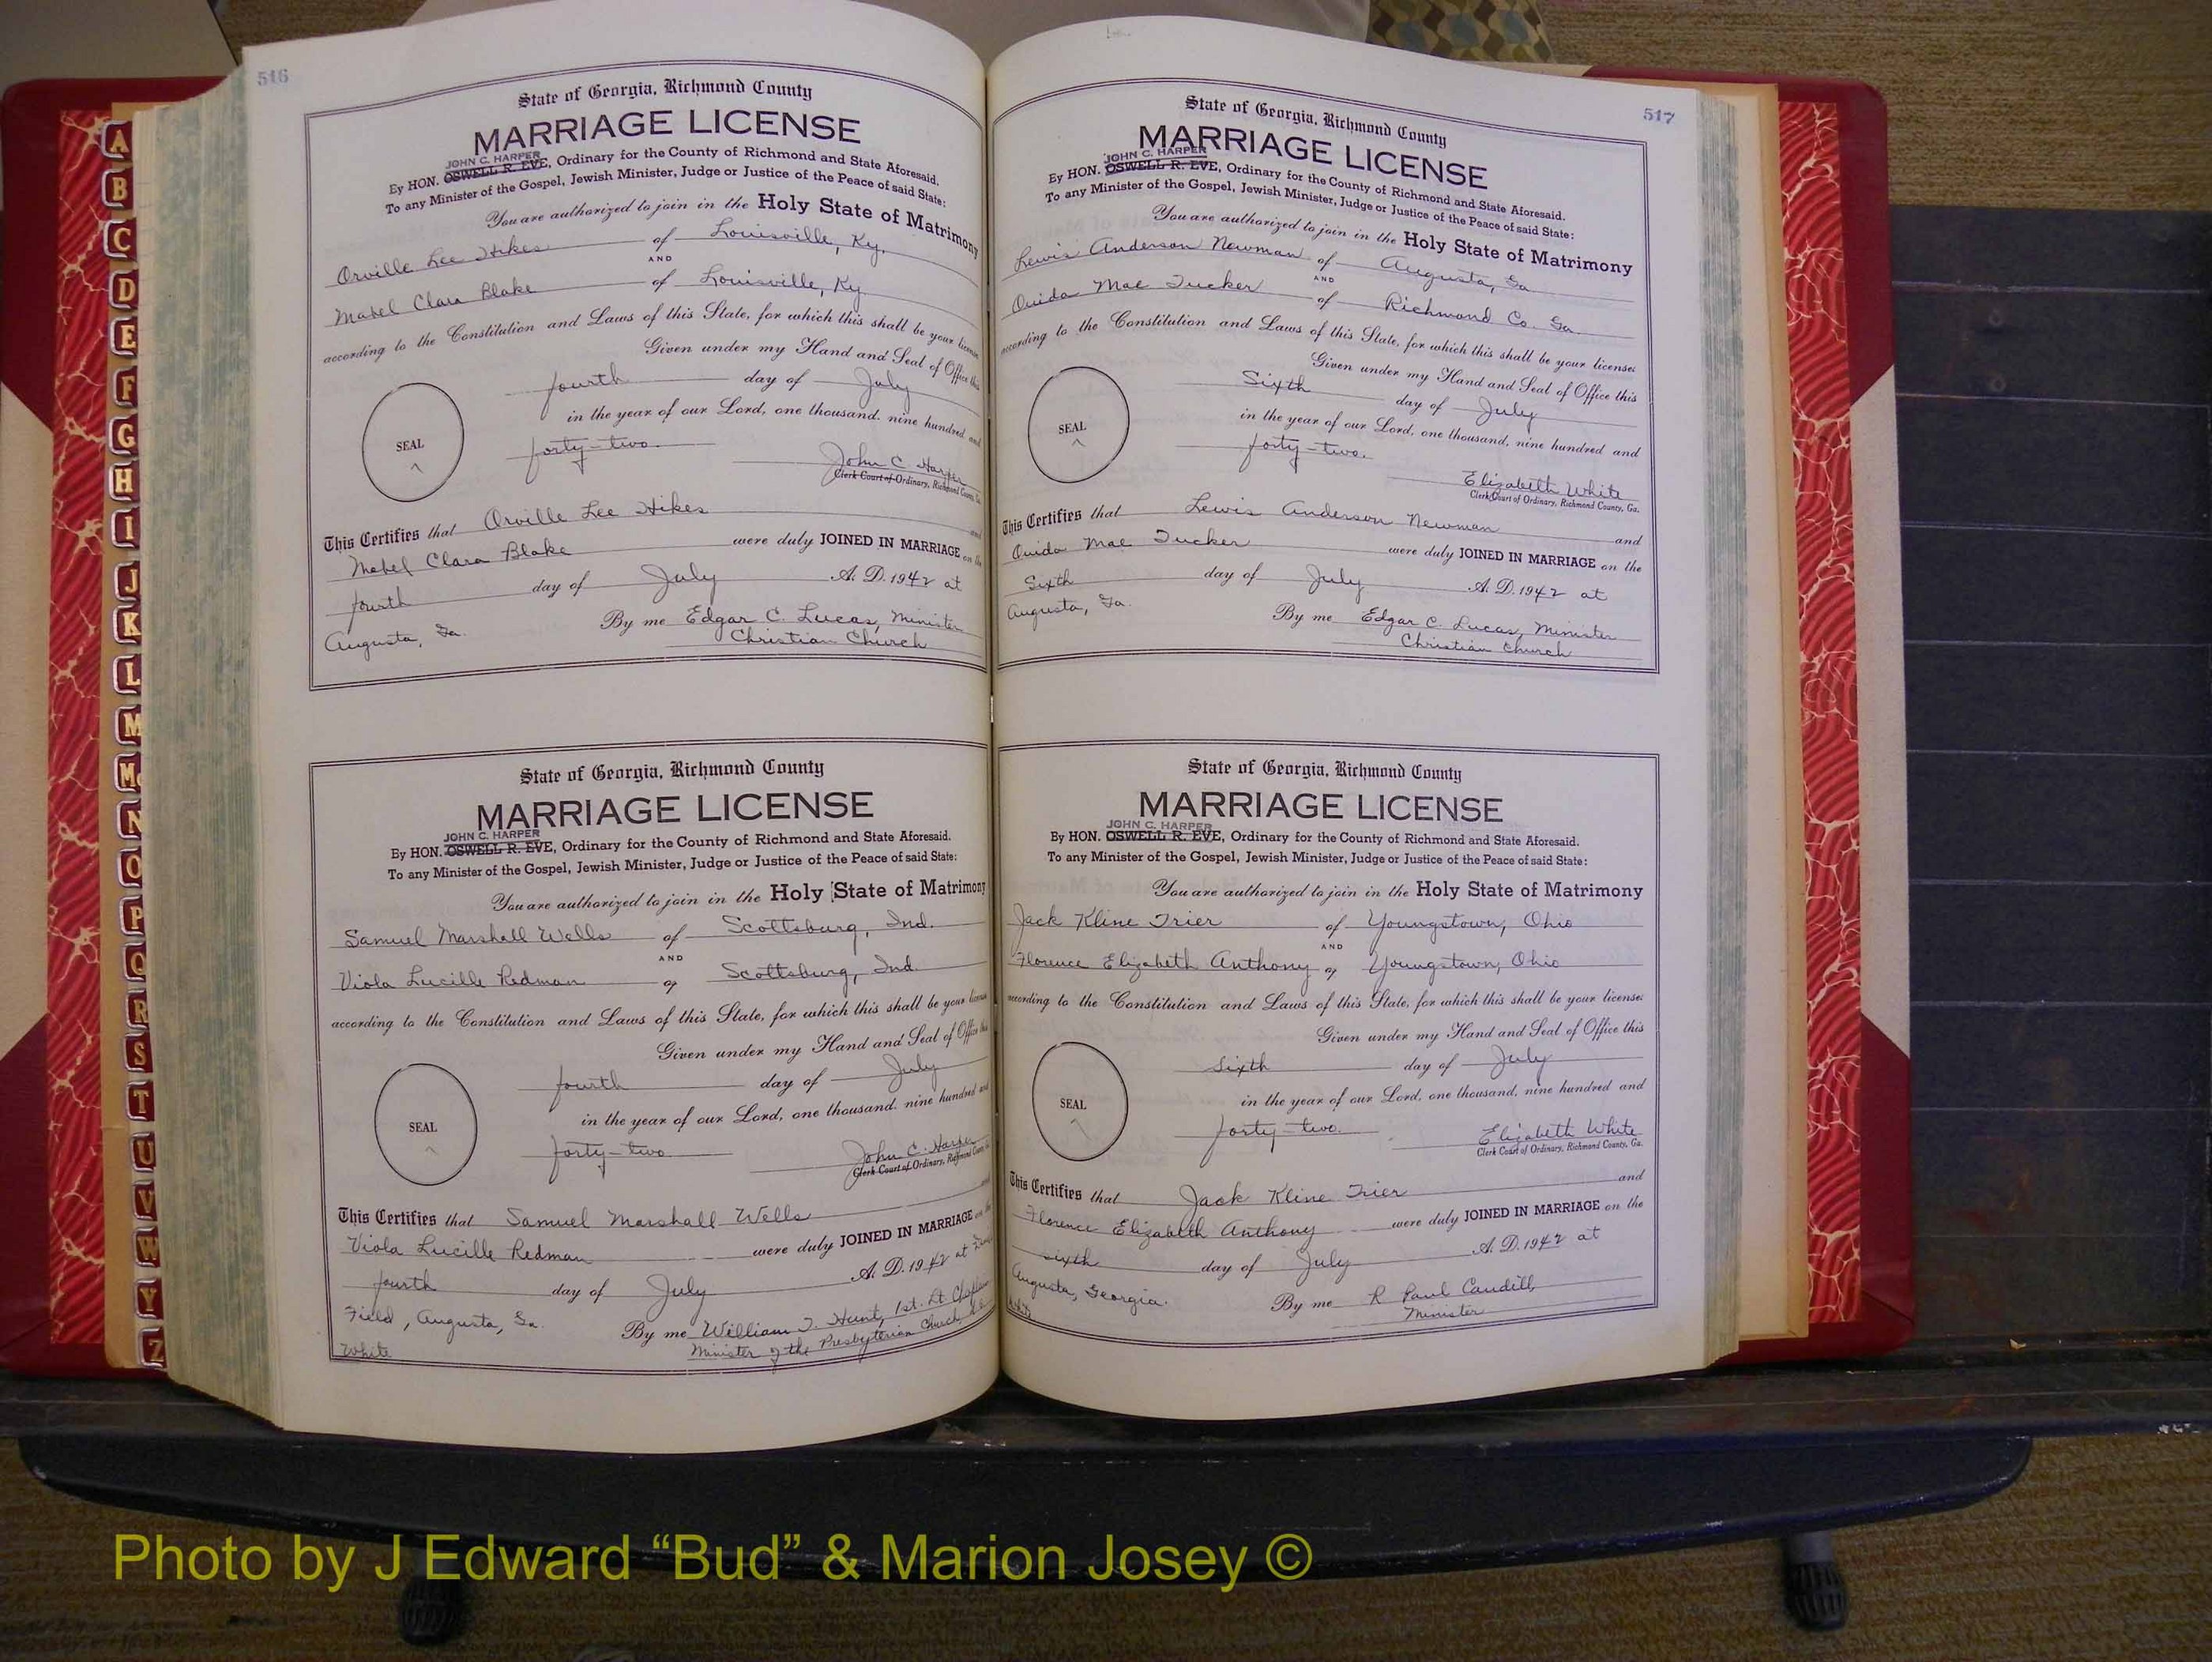 516
State of Georgia, Richmond County
MARRIAGE LICENSE
JOHN C. HARPER
By HON. OSWELL R. EVE, Ordinary for the County of Richmond and State Aforesaid.
To any Minister of the Gospel, Jewish Minister, Judge or Justice of the Peace of said State:
You are authorized to join in the Holy State of Matrimony
Orville Lee Hikes of Louisville, Ky.
AND
Mabel Clara Blake of Louisville, Ky.
according to the Constitution and Laws of this State, for which this shall be your license
Given under my Hand and Seal of Office this
fourth day of July
in the year of our Lord, one thousand, nine hundred and
SEAL
forty-two.
John C. Harper
Clerk Court of Ordinary, Richmond County, Ga.
This Certifies that Orville Lee Hikes and
Mabel Clara Blake were duly JOINED IN MARRIAGE on the
fourth day of July A. D. 1942 at
Augusta, Ga. By me Edgar C. Lucas, Minister
Christian Church
State of Georgia, Richmond County
MARRIAGE LICENSE
JOHN C. HARPER
By HON. OSWELL R. EVE, Ordinary for the County of Richmond and State Aforesaid.
To any Minister of the Gospel, Jewish Minister, Judge or Justice of the Peace of said State:
You are authorized to join in the Holy State of Matrimony
Samuel Marshall Wells of Scottsburg, Ind.
AND
Viola Lucille Redman of Scottsburg, Ind.
according to the Constitution and Laws of this State, for which this shall be your license
Given under my Hand and Seal of Office this
fourth day of July
in the year of our Lord, one thousand, nine hundred and
SEAL
forty-two
John C. Harper
Clerk Court of Ordinary, Richmond County, Ga.
This Certifies that Samuel Marshall Wells and
Viola Lucille Redman were duly JOINED IN MARRIAGE on the
fourth day of July A. D. 1942 at
Field, Augusta, Ga. By me William J. Hunt, 1st. Lt. Chaplain
Minister of the Presbyterian Church,
White
517
State of Georgia, Richmond County
MARRIAGE LICENSE
JOHN C. HARPER
By HON. OSWELL R. EVE, Ordinary for the County of Richmond and State Aforesaid.
To any Minister of the Gospel, Jewish Minister, Judge or Justice of the Peace of said State:
You are authorized to join in the Holy State of Matrimony
Lewis Anderson Newman of Augusta, Ga
AND
Ouida Mae Tucker of Richmond Co. Ga.
according to the Constitution and Laws of this State, for which this shall be your license:
Given under my Hand and Seal of Office this
Sixth day of July
in the year of our Lord, one thousand, nine hundred and
SEAL
forty-two.
Elizabeth White
Clerk Court of Ordinary, Richmond County, Ga.
This Certifies that Lewis Anderson Newman and
Ouida Mae Tucker were duly JOINED IN MARRIAGE on the
Sixth day of July A. D. 1942 at
Augusta, Ga. By me Edgar C. Lucas, Minister
Christian Church
State of Georgia, Richmond County
MARRIAGE LICENSE
JOHN C. HARPER
By HON. OSWELL R. EVE, Ordinary for the County of Richmond and State Aforesaid.
To any Minister of the Gospel, Jewish Minister, Judge or Justice of the Peace of said State:
You are authorized to join in the Holy State of Matrimony
Jack Kline Trier of Youngstown, Ohio
AND
Florence Elizabeth Anthony of Youngstown, Ohio
according to the Constitution and Laws of this State, for which this shall be your license:
Given under my Hand and Seal of Office this
sixth day of July
in the year of our Lord, one thousand, nine hundred and
SEAL
forty-two.
Elizabeth White
Clerk Court of Ordinary, Richmond County, Ga.
This Certifies that Jack Kline Trier and
Florence Elizabeth Anthony were duly JOINED IN MARRIAGE on the
sixth day of July A. D. 1942 at
Augusta, Georgia. By me R Paul Caudill,
Minister
White
A
B
C
D
E
F
G
H
I
J
K
L
M
Mc
N
O
P
Q
R
S
T
U
V
W
Y
Z
Photo by J Edward “Bud” & Marion Josey ©